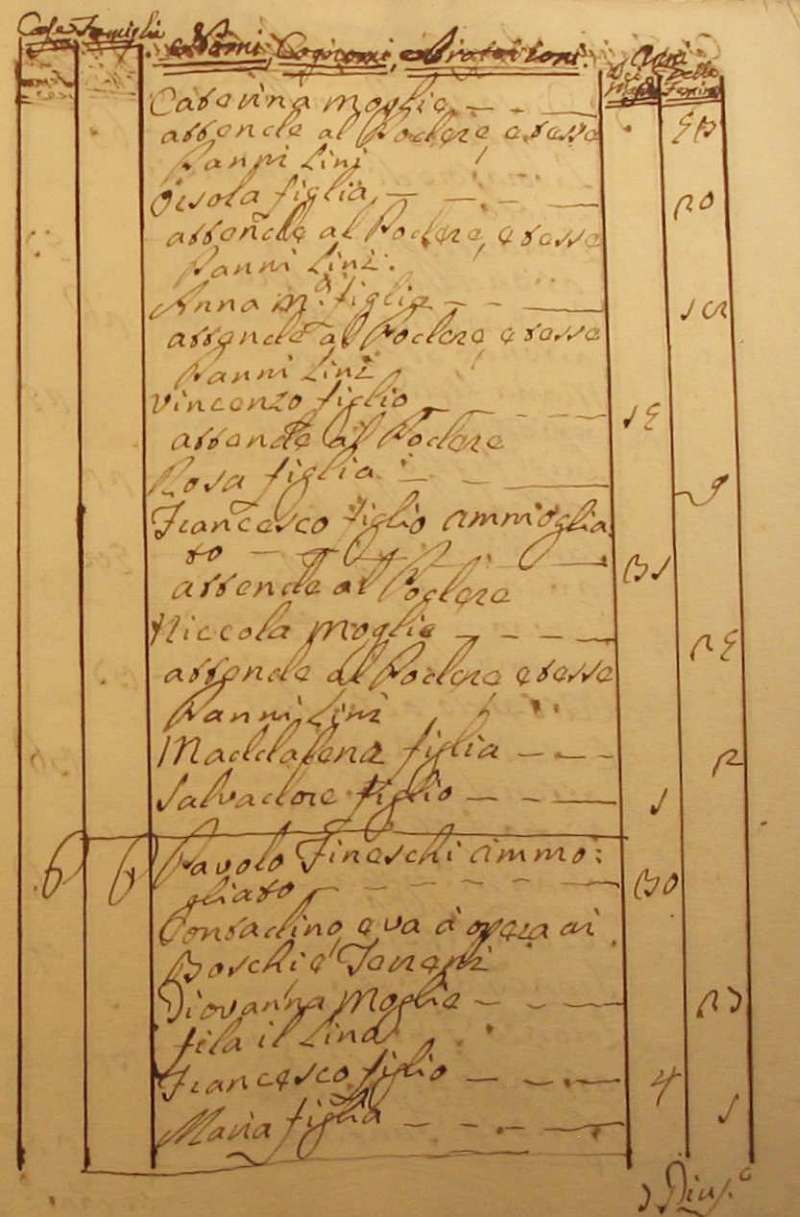 Case Famiglie Nomi, Cognomi, e Professioni. Anni
Dei Maschi Delle Femine
Caterina moglie
attende al Podere, e tesse
Panni Lini
Orsola figlia 20
attende al Podere, e tesse
Panni Lini.
Anna M.a figlia
attende al Podere, e tesse
Panni Lini
Vincenzo figlio
attende al Podere
Rosa figlia 9
Francesco figlio ammoglia
to 31
attende al Podere
Niccola moglie
attende al Podere, e tesse
Panni Lini
Maddalena figlia 2
Salvadore figlio 1
6 6 Pavolo Fineschi ammo:
gliato 30
Contadino, e va à opera ai
Boschi e Terreni
Giovanna moglie 23
fila il Lino
Francesco figlio 4
Maria figlia 1